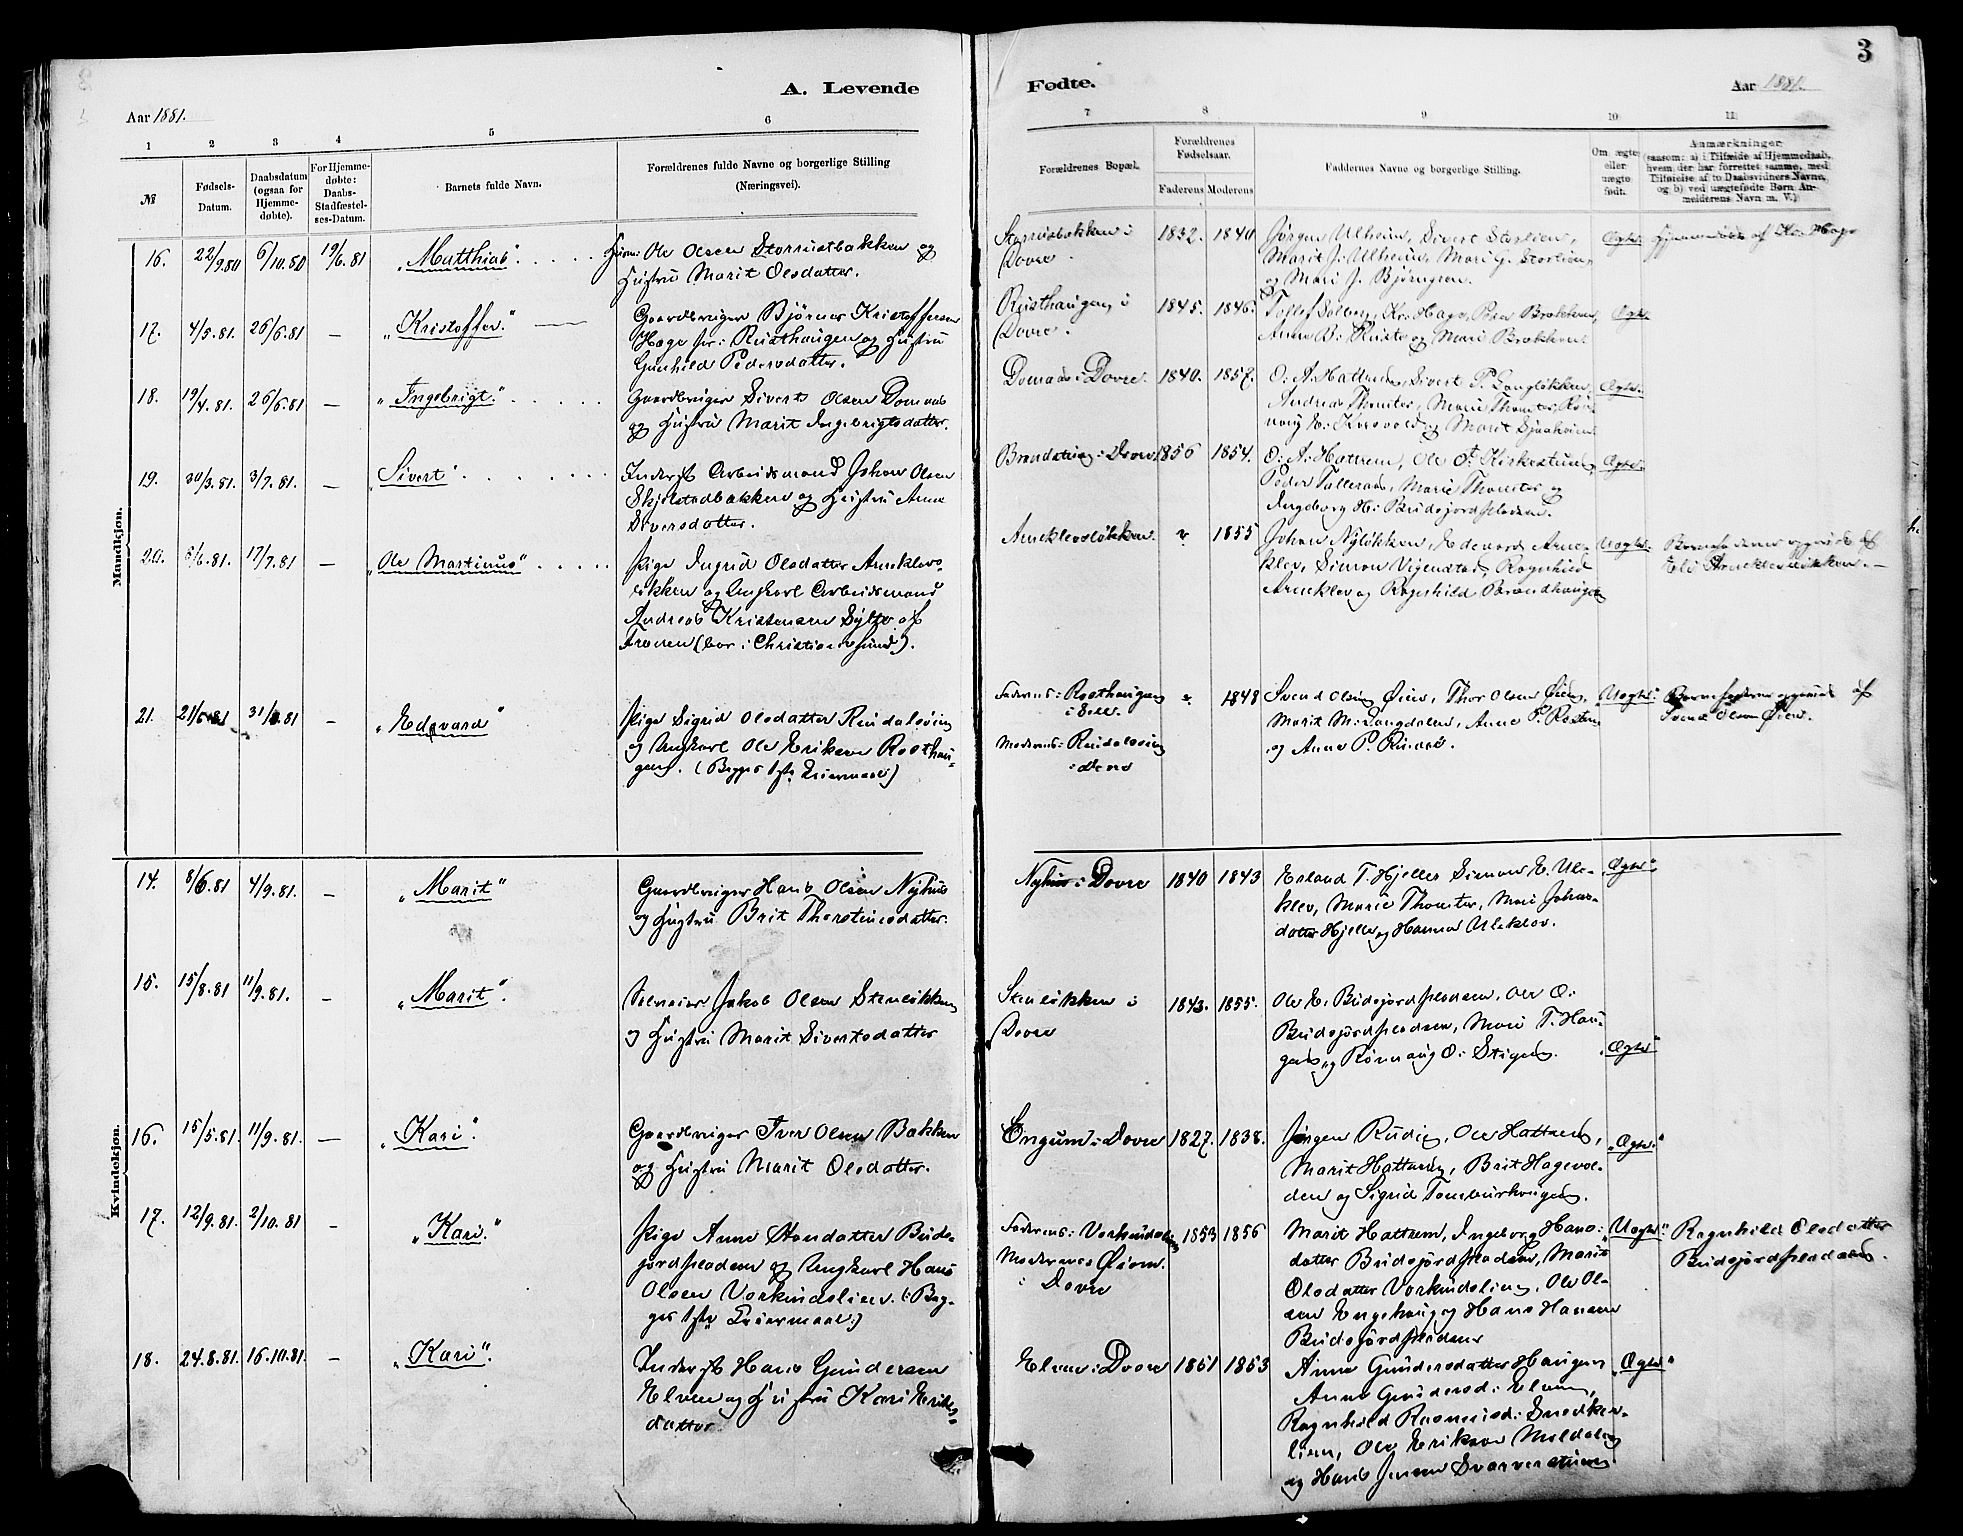 3
A. Levende
Fødte.
Aar 1881.
Aar 1881.
1 2 3 4 5 6
7 8 9 10 11
№
Fødsels-
Datum.
Daabsdatum
(ogsaa for
Hjemme-
døbte).
For Hjemme-
døbte:
Daabs-
Stadfæstel-
ses-Datum.
Barnets fulde Navn.
Forældrenes fulde Navne og borgerlige Stilling
(Næringsvei).
Forældrenes Bopæl.
Forældrenes
Fødselsaar.
Faderens Moderens
Faddernes Navne og borgerlige Stilling.
Om ægte
eller
uægte
født.
Anmærkninger
(saasom: a) i Tilfælde af Hjemmedaab,
hvem der har forrettet samme, med
Tilføielse af to Daabsvidners Navne,
og b) ved uægtefødte Børn An-
melderens Navn m. V.)
Mandkjøn.
16. 22/9.80 6/10.80 19/6.81 "Matthias"
Ole Olsen Storrustbakken og
Hustru Marit Olsdatter.
Storrustbakken i
Dovre.
1832. 1840
Jørgen Ulheim, Sivert Storlien,
Marit J. Ulheim, Mari J. Storlien
og Mari J. Bjørngren.
Ægte
Hjemmedøbt af Kr. Hage
17. 4/5.81. 26/6.81 — "Kristoffer."
Gaardbruger Bjørner Kristoffersen
Hage Rusthaugen og Hustru
Gunhild Pedersdatter.
Rusthaugen i
Dovre.
1845. 1846.
Tollef Solberg, Kr. Hage, Peder Brækken,
Anne B. Ruste og Mari Brækken.
Ægte
18. 19/4.81. 26/6.81 — "Ingebrigt."
Gaardbruger Sivert Olsen Domaas
og Hustru Marit Ingebrigtsdatter.
Domaas i Dovre. 1840. 1857.
O. A. Hattrem, Sivert P. Langløkken,
Andreas Thomter, Marie Thomter, Røn-
naug E. Korsvold og Marit Sjaaheim
Ægte.
19. 30/3.81. 3/7.81. — "Sivert"
Inderst Arbeidsmand Johan Olsen
Skjelstadbakken og Hustru Anne
Siversdatter.
Brandstien i Dovre 1856 1854.
O. A. Hattrem, Ole T. Kirkestuen,
Peder Tallerud, Marie Thomter og
Ingborg H. Budsjordpladsen.
Ægte
20. 6/6.81. 17/7.81 — "Ole Martinus"
Pige Ingrid Olsdatter Arneklevs-
løkken og Ungkarl Arbeidsmand
Andreas Kristensen Sylte af
Frænen (bor i Christiansund).
Arneklevsløkken. " 1855
Johan Nyløkken, Edevard Arne-
klev, Simon Vigenstad, Ragnhild
Arneklev og Ragnhild Brændhaugen
Uægte.
Barnefaderen opgivet af
Eli Arneklevsløkken.
21. 21/6.81 31/7.81 — "Edevard"
Pige Sigrid Olsdatter Rudsløien
og Ungkarl Ole Eriksen Rosthau-
gen. (Begges 1ste Leiermaal)
Faderens: Rosthaugen
i Sell.
Moderens: Rudsløien
i Dovre
" 1848
Svend Olsen Øien, Thor Olsen Øien,
Marit M. Langdalen, Anne P. Rosten
og Anne P.
Uægte"
Barnefaderen opgivet af
Svend Olsen Øien.
Kvindekjøn.
14. 8/6.81 4/9.81. — "Marit"
Gaardbruger Hans Olsen Nyhus
og Hustru Brit Thorstinsdatter.
Nyhus i Dovre 1840 1843
Erland T. Hjelle, Simon E. Ule-
klev, Marie Thomter, Mari Johan-
datter Hjelle og Hanna Uleklev.
Ægte"
15. 15/8.81 11/9.81. — "Marit".
Selveier Jakob Olsen Stenløkken
og Hustru Marit Sivertsdatter
Stenløkken i
Dovre
1843. 1855.
Ole E. Budsjordpladsen, Ole O.
Budsjordpladsen, Mari T. Hau-
gen og Rønnaug O. Stigen.
Ægte"
16. 15/5.81. 11/9.81. — "Kari".
Gaardbruger Iver Olsen Bakken
og Hustru Marit Olsdatter.
Engum i Dovre 1827. 1838.
Jørgen Rudie, Ole Hattrem,
Marit Hattrem, Brit Hagevol-
den og Sigrid Tomburhaugen.
"Ægte"
17. 12/9.81. 2/10.81 — "Kari."
Pige Anne Hansdatter Buds-
jordpladsen og Ungkarl Hans
Olsen Vorkindslien. (Beg-
ges 1ste Leiermaal.)
Faderens: Vorkindslien
Moderens Øiom.
i Dovre
1853 1856
Marit Hattrem, Ingeborg Hans-
datter Budsjordpladsen, Marit
Olsdatter Vorkindslien, Ole Ol-
sen Engehaug og Hans Hansen
Budsjordpladsen
Uægte"
Ragnhild Olsdatter
Budsjordpladsen.
18. 24.8.81. 16.10.81. — "Kari".
Inderst Hans Gundersen
Elven og Hustru Kari Eriks-
datter
Elven i Dovre 1851 1853
Anne Gundersdatter Haugen
Anne Gundersd. Elven,
Ragnhild Rasmusd. Snedker-
lien, Ole Eriksen Meldalen
og Hans Jensen Svarverstuen
"Ægte"